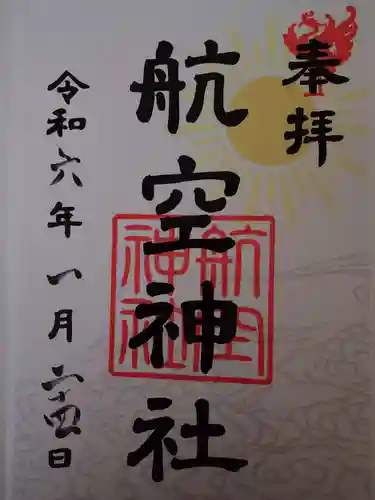 奉拝
航空神社
航空神社
令和六年八月二十四日